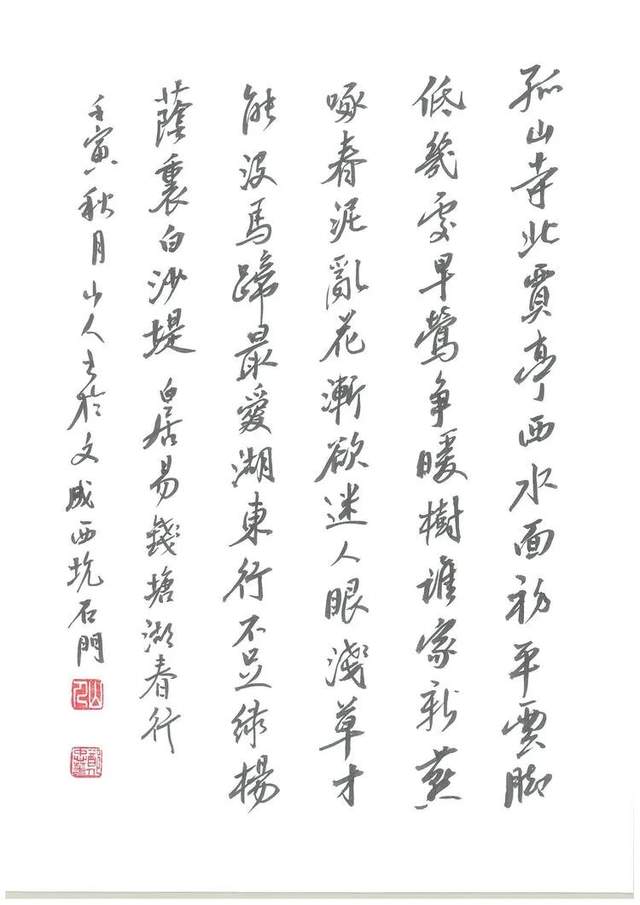 孤山寺北賈亭西水面初平雲脚
低幾處早鶯争暖樹誰家新燕
啄春泥亂花漸欲迷人眼淺草才
能没馬蹄最愛湖東行不足綠楊
蔭裏白沙堤 白居易錢塘湖春行
壬寅秋月山人书於文成西坑石門
山人